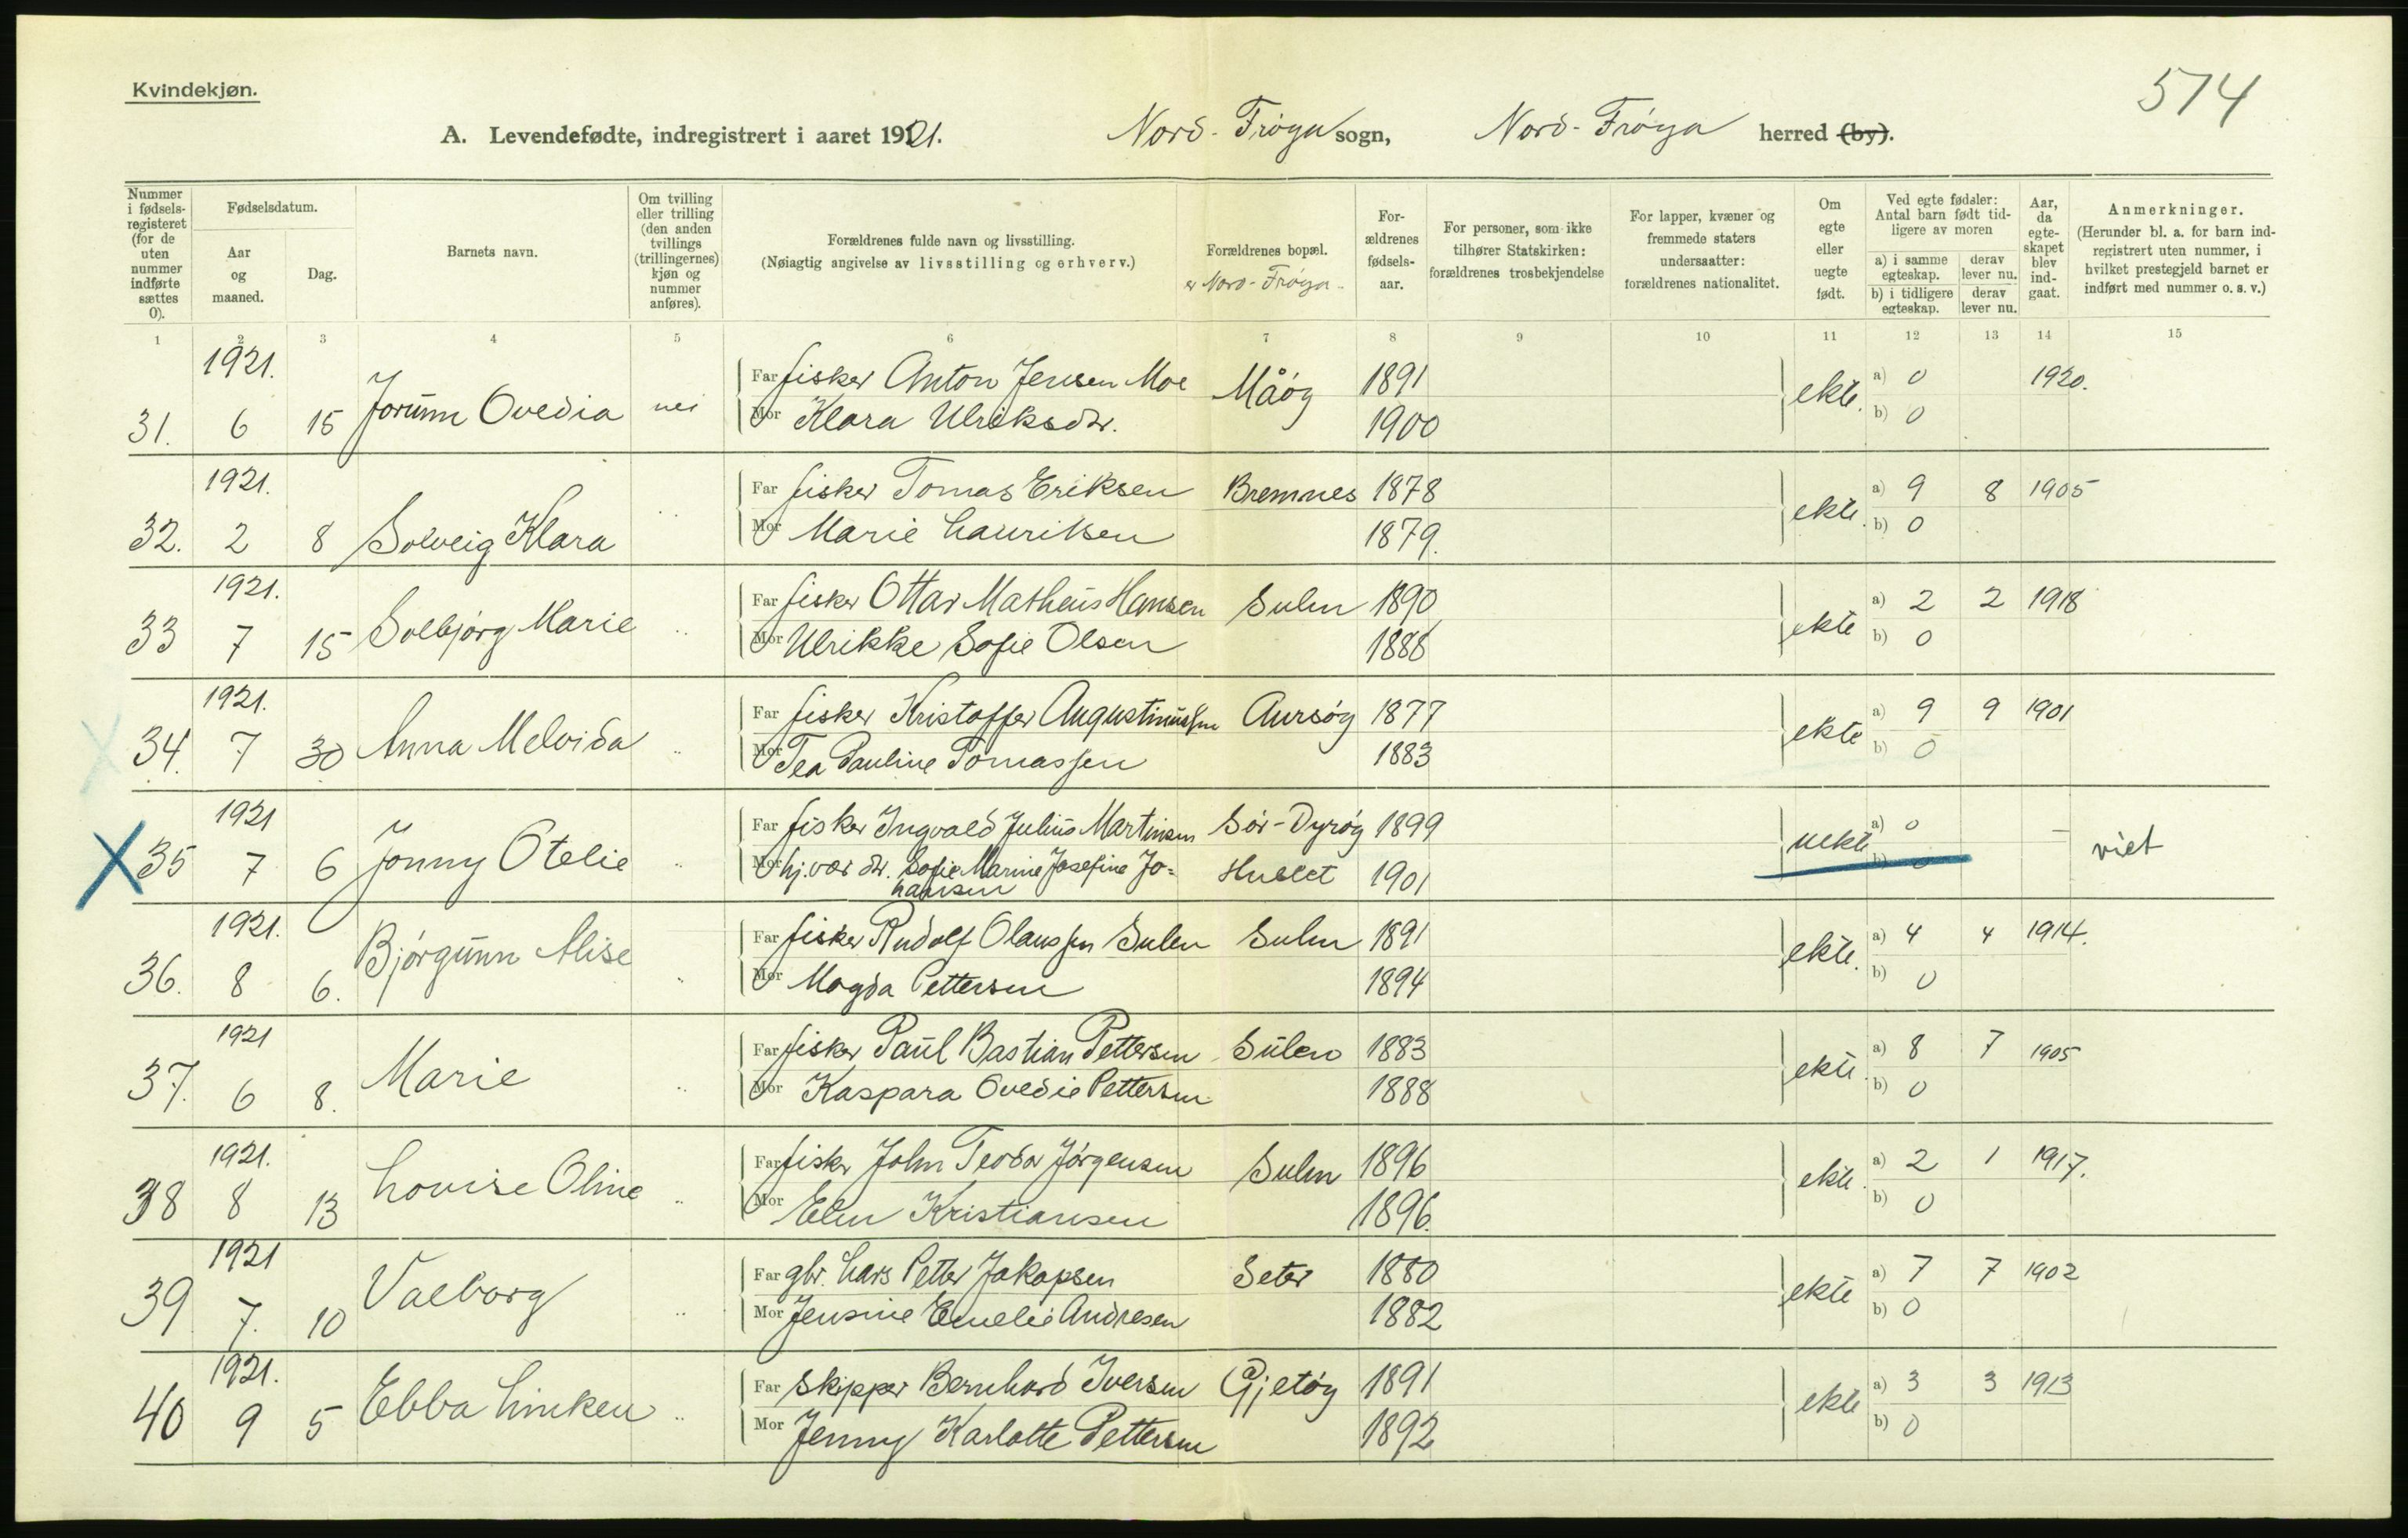 Kvindekjøn.
574
A. Levendefødte, indregistrert i aaret 1921. Nord-Frøya sogn, Nord-Frøya herred (by).
Nummer i fødselsregisteret (for de uten nummer indførte sættes 0).
Fødselsdatum.
Aar og maaned.
Dag.
Barnets navn.
Om tvilling eller trilling (den anden tvillings (trillingernes) kjøn og nummer anføres).
Forældrenes fulde navn og livsstilling.
(Nøiagtig angivelse av livsstilling og erhverv.)
Forældrenes bopæl.
er Nord-Frøya
Forældrenes fødselsaar.
For personer, som ikke tilhører Statskirken: forældrenes trosbekjendelse
For lapper, kvæner og fremmede staters undersaatter: forældrenes nationalitet.
Om egte eller uegte født.
Ved egte fødsler: Antal barn født tidligere av moren
a) i samme egteskap.
derav lever nu.
b) i tidligere egteskap.
derav lever nu.
Aar, da egteskapet blev indgaat.
Anmerkninger.
(Herunder bl. a. for barn indregistrert uten nummer, i hvilket prestegjeld barnet er indført med nummer o. s. v.)
1 2 3 4 5 6 7 8 9 10 11 12 13 14 15
1921.
31. 6 15 Jorunn Ovedia nei
Far fisker Anton Jensen Moe Måøy 1891 ekte. a) 0 1920.
Mor Klara Ulriksdtr. 1900 b) 0
1921.
32. 2 8 Solveig Klara ..
Far fisker Tomas Eriksen Bremnes 1878 ekte. a) 9 8 1905
Mor Marie Lauritsen 1879. b) 0
1921.
33 7 15 Solbjørg Marie ..
Far fisker Ottar Matheus Hansen Sulen 1890 ekte a) 2 2 1918
Mor Ulrikke Sofie Olsen 1888 b) 0
1921.
34. 7 30 Anna Melvida ..
Far fisker Kristoffer Augustinussen Aursøy 1877 ekte a) 9 9 1901
Mor Tea Pauline Tomassen 1883 b) 0
1921
X 35 7 6 Jonny Otelie ..
Far fisker Ingvald Julius Martinsen Sør-Dyrøy 1899 uekte a) 0 – viet
Mor hj.vær. dtr. Sofie Marine Josefine Jo=
hansen Huslet 1901 b) 0
1921.
36. 8 6. Bjørgunn Alise ..
Far fisker Rudolf Olaussen Sulen Sulen 1891 ekte. a) 4 4 1914.
Mor Magda Pettersen 1894 b) 0
1921
37. 6 8. Marie ..
Far fisker Paul Bastian Pettersen Sulen 1883 ekte. a) 8 7 1905
Mor Kaspara Ovedie Pettersen 1888 b) 0
1921.
38 8 13 Louise Oline ..
Far fisker John Teodor Jørgensen Sulen 1896 ekte. a) 2 1 1917.
Mor Elen Kristiansen 1896. b) 0
1921
39 7. 10 Valborg ..
Far gbr. Lars Petter Jakopsen Seter 1880 ekte a) 7 7 1902
Mor Jensine Emelie Andresen 1882 b) 0
1921.
40 9 5 Ebba Linken ..
Far skipper Bernhard Iversen Gjetøy 1891 ekte a) 3 3 1913
Mor Jenny Karlotte Pettersen 1892 b) 0